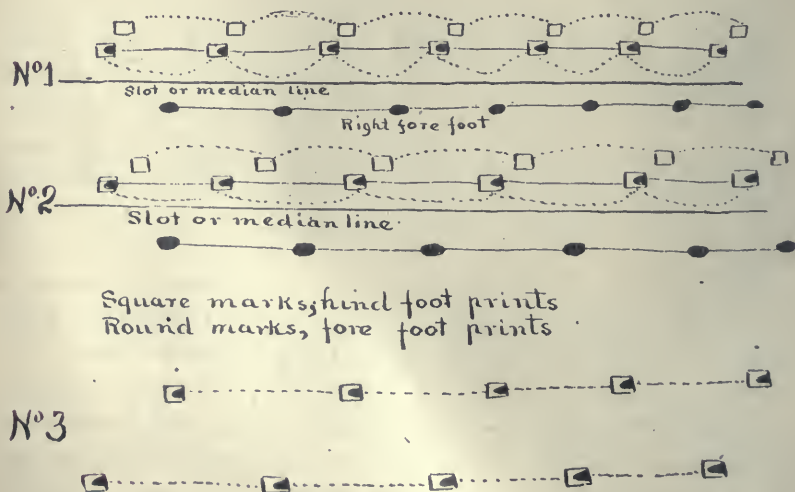 Nº1
Slot or median line
Right fore foot
Nº2
Slot or median line.
Square marks, hind foot prints
Round marks, fore foot prints
Nº3